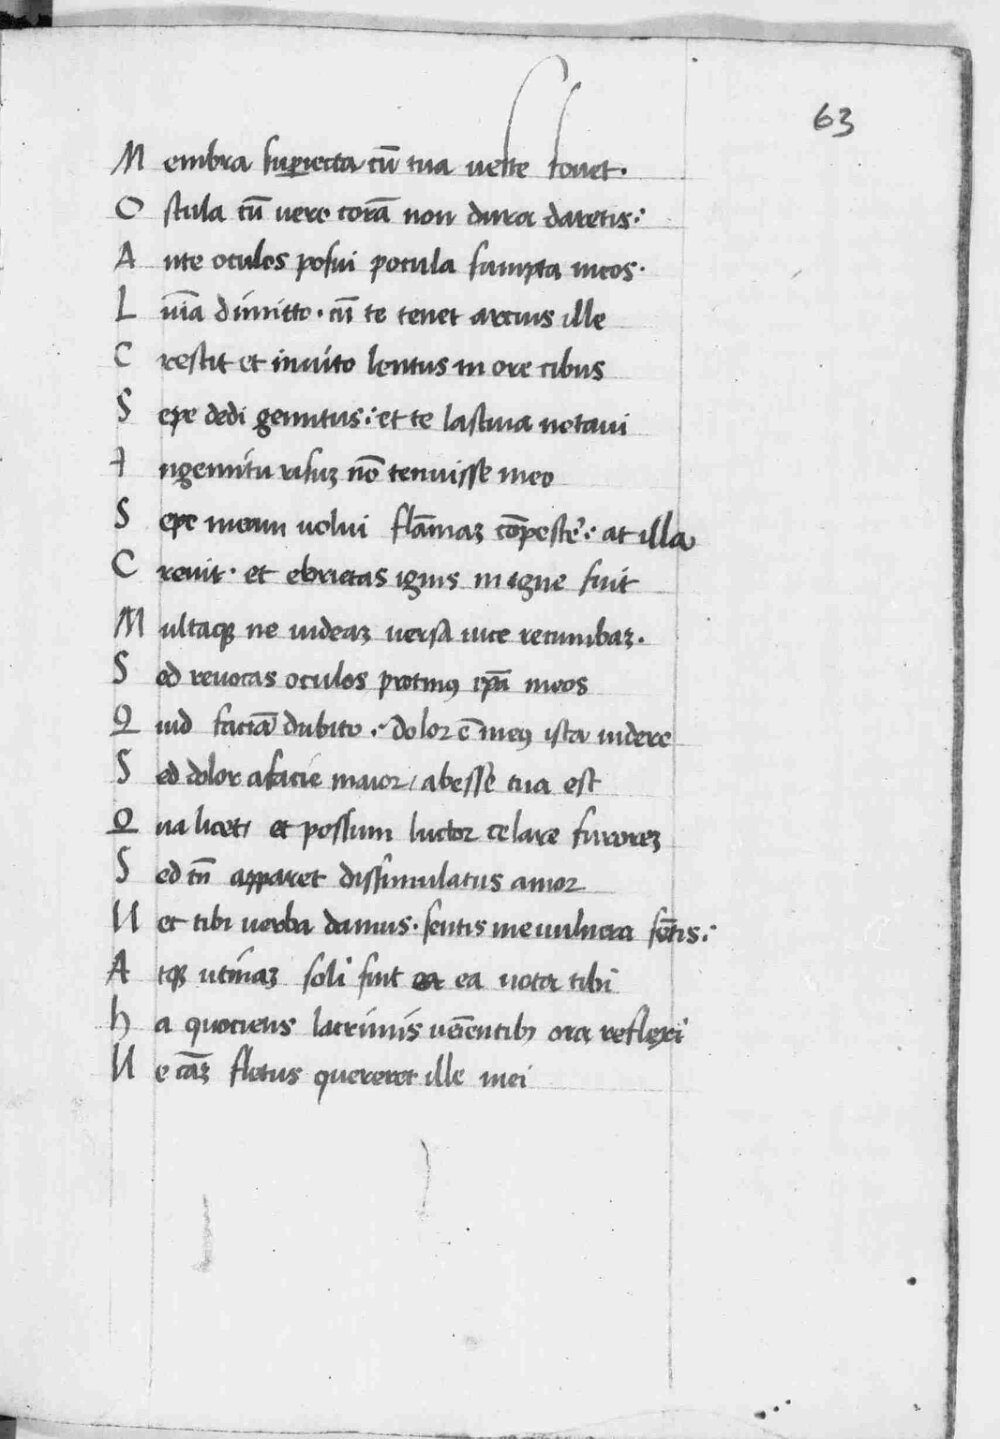 63
Membra supiecta cū tua ueste fouet.
Oscula cū uero corā non dura daretis:
Ante oculos posui pocula sumpta meos.
Luīa dimitto. cū te tenet artius ille
Crescit et inuito lentus in ore cibus
Sepe dedi gemitus: et te lasciua notaui
Ingemitu risuꝫ nō tenuisse meo
Sepe meum uolui flāmaꝫ cōpescē: at illa
Creuit. et ebrietas ignis in igne fuit
Multaqꝫ ne uideaꝫ uersa uice recumbaꝫ.
Sed reuocas oculos protinꝰ ipā meos
Quid faciā dubito: dolor ē meꝰ ista uidere
Sed dolor afacie maior, abesse tua est
Qua licet, et possum luctor celare furoreꝫ
Sed tn̄ apparet dissimulatus amor
Net tibi uerba damus. sentis me uulnera sētis:
Atqꝫ utinaꝫ soli sint ea nota tibi
ha quociens lacrimis ueīentibꝫ ora reflexi
Ne cāꝫ fletus quereret ille mei